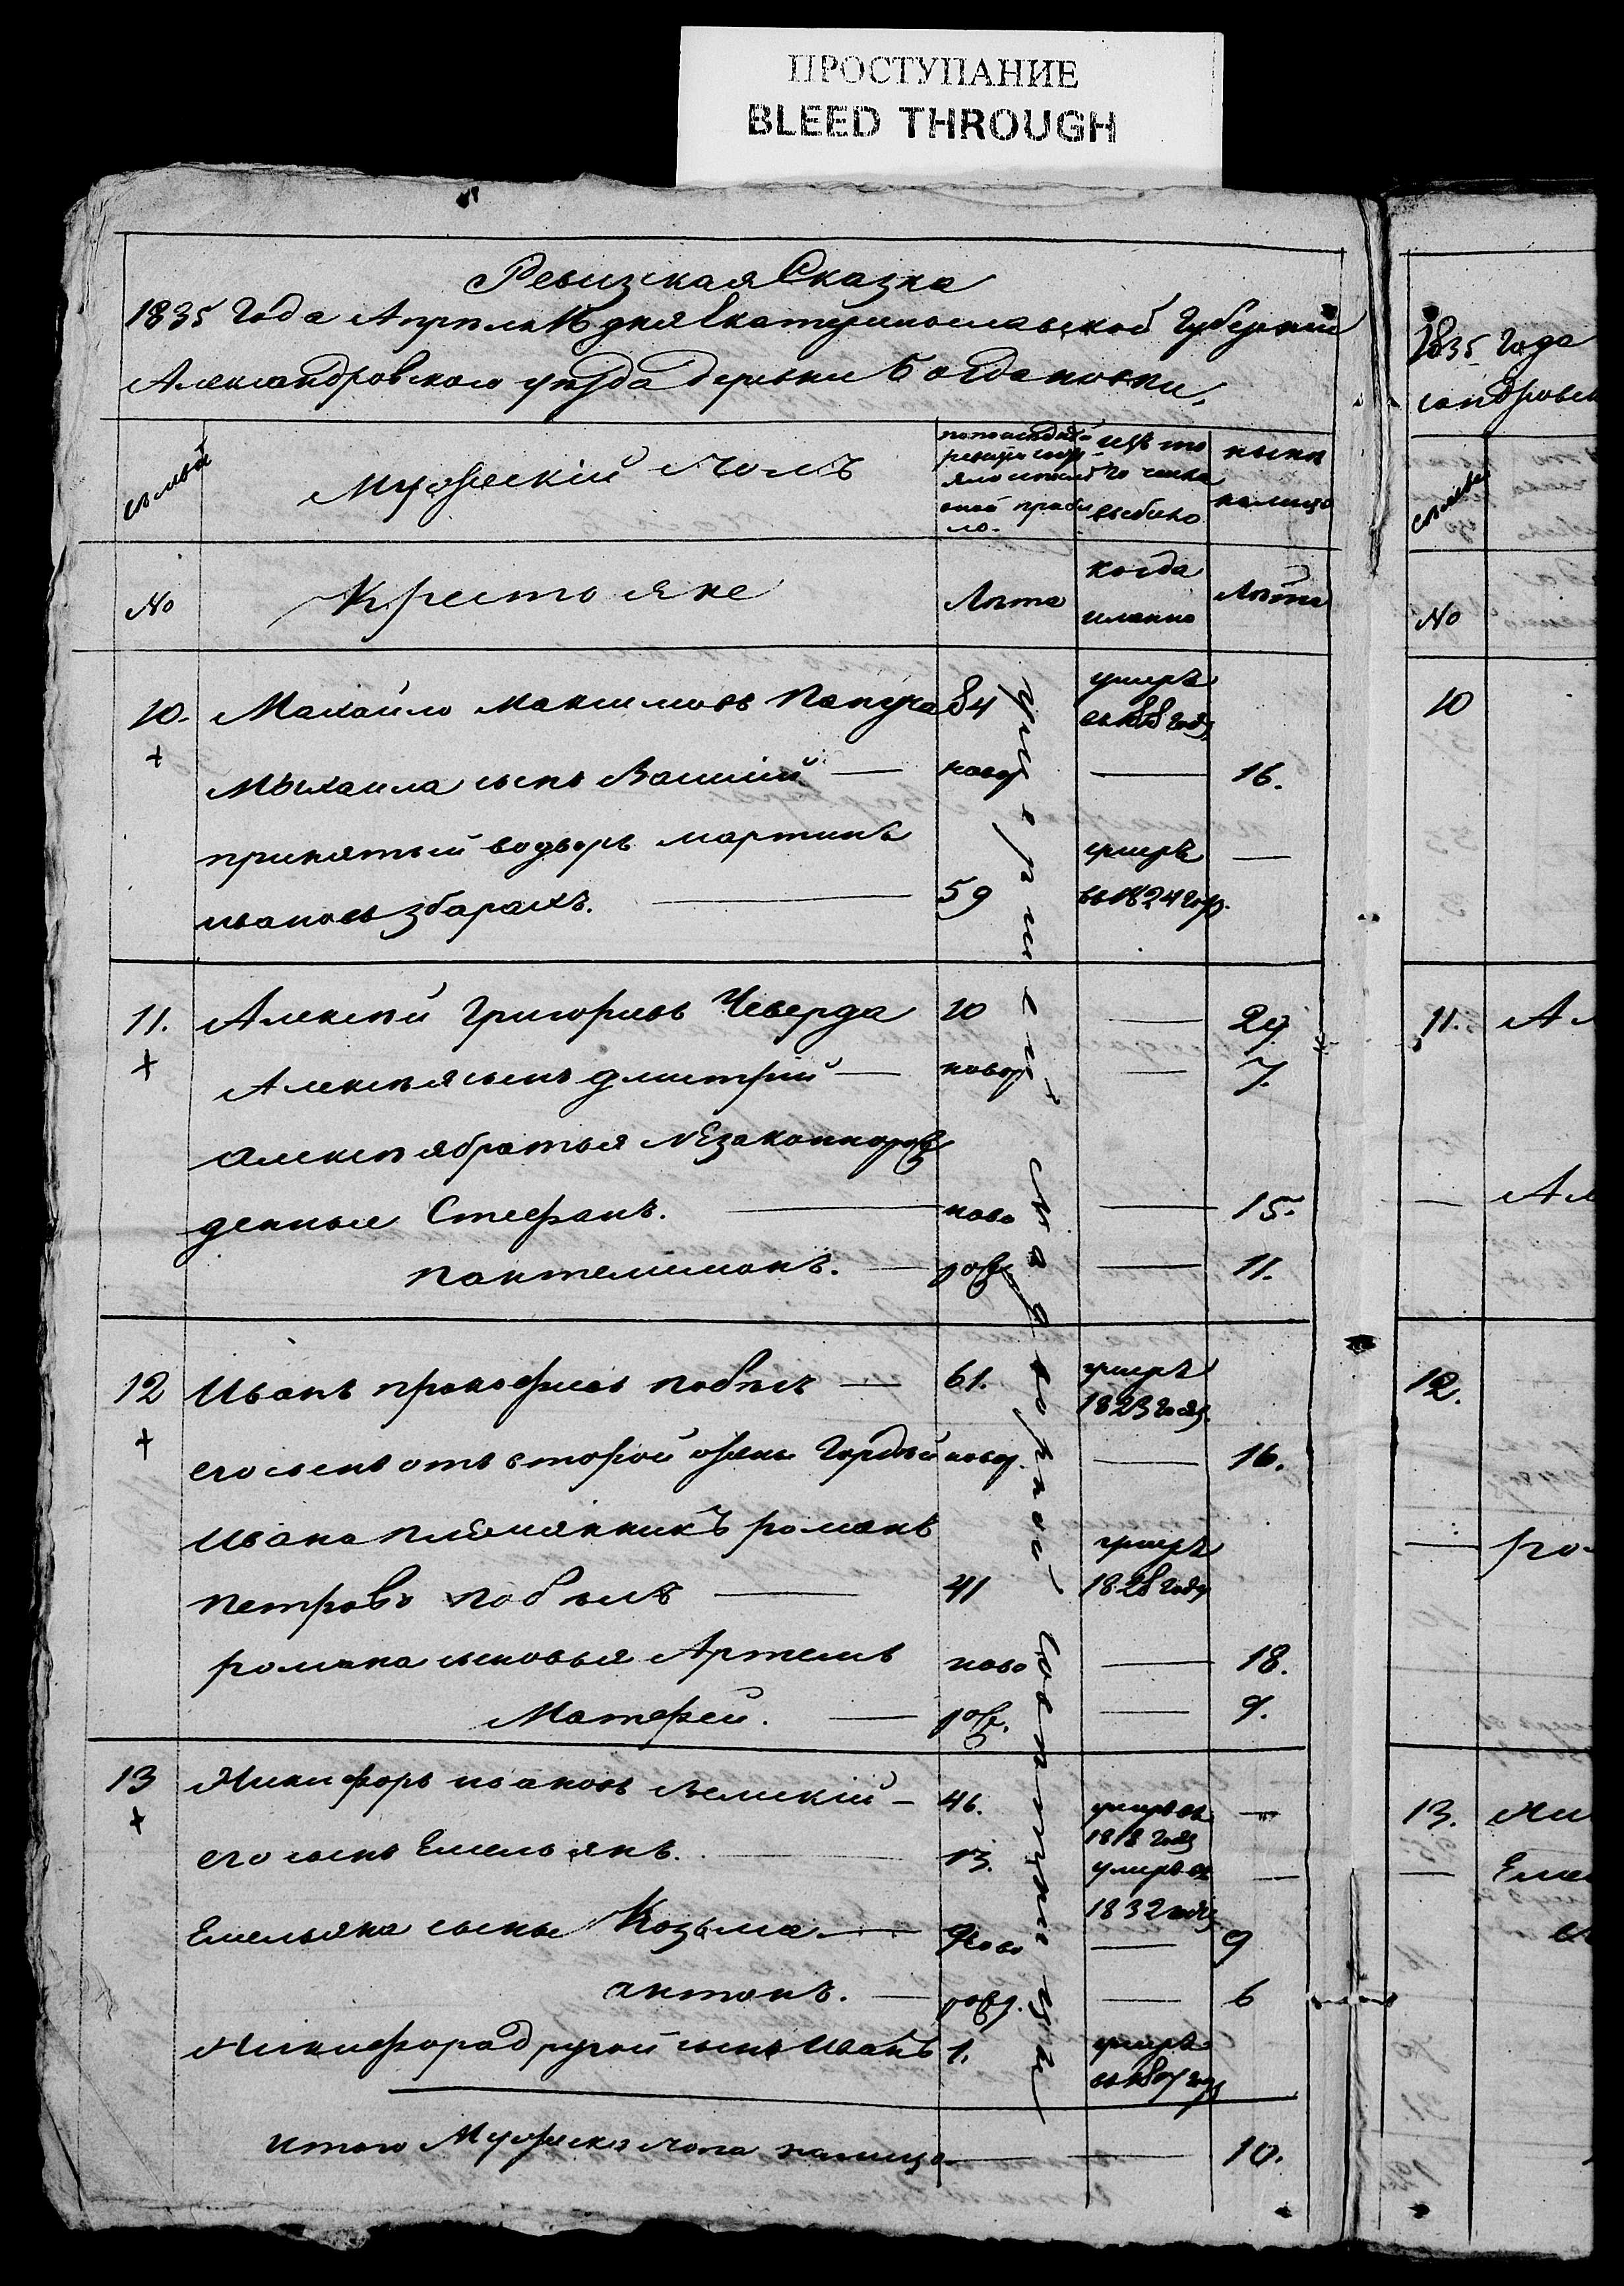 ПРОСТУПАНИЕ
BLEED THROUGH
Ревизская Сказка
1835 года Апреля 16 дня Екатеринославской Губернии
Александровского уезда деревни Богдановки.
семьи
Мужеский полъ
по последней
ревизии
ло.
изъ то
го числа
выбыло
ныне
налицо
№
Крестьяне
Лета
когда
именно
Лета
10. Михайло Максимовъ Папуча 84 умеръ
въ 1818 году
+
Михаила сынъ Василий — новор — 16.
принятый во дворъ Мартинъ умеръ —
Ивановъ Збаражъ. — 59 въ 1824 году.
11. Алексей Григорьевъ Чеверда 10 — 29
+
Алексея сынъ Дмитрий — новор — 7.
Алексея братья незаконнорож
денные Стефанъ. — ново — 15.
Пантелимонъ. — рож. — 11.
12 Иванъ Прокофьевъ Кобелъ — 61. умеръ
1823 году.
+
его сынъ отъ второй жены Гордей новор. — 16.
Ивана племянникъ Романъ умеръ
Петровъ — 41 1828 году
Романа сыновья Артемъ ново — 18.
Матфей. — рож. — 9.
13 Никифоръ Ивановъ Великий — 46. умеръ въ —
1818 году
+
его сынъ Емельянъ. — 13. умеръ въ —
1832 году
Емельяна сыны Козьма — ново — 9
Антонъ. — рожд. — 6
Никифора другой сынъ Иванъ 1. умеръ
Итого Мужеска пола налицо — — 10.
1835 года
сандровск
семьи
№
10
11. Ал
— Ал
12.
— Ро
13. Ни
— Емел